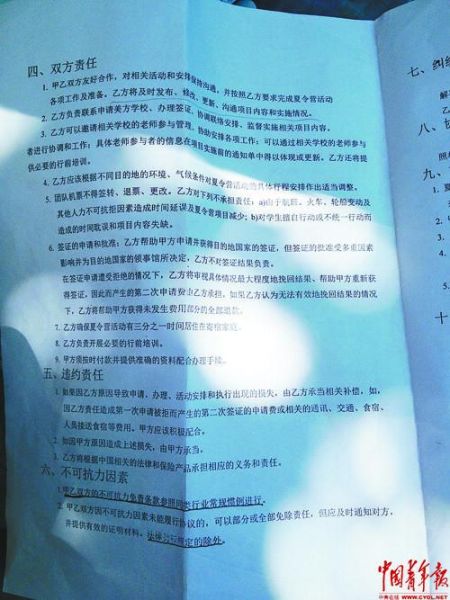 四、双方责任
1. 甲乙双方友好合作，对相关活动和安排保持沟通，并按照乙方要求完成夏令营活动
各项工作及准备。乙方将及时发布、修改、更新、沟通项目内容和实施情况。
2. 乙方负责联系申请美方学校、办理签证、协调联络安排、监督实施相关项目内容。
3. 乙方可以邀请相关学校的老师参与管理，协助安排各项工作；可以通过相关学校的老师参与
者进行协调和工作；具体老师参与者的信息在项目实施前的通知单中得以体现或更新。乙方还将提
供必要的行前培训。
4. 乙方应该根据不同目的地的环境、气候条件对夏令营活动的具体行程安排作出适当调整。
5. 团队机票不得签转、退票、更改。乙方对下列不承担责任：a)由于航班、火车、轮船变动及
其他人力不可抗拒因素造成时间延误及夏令营项目减少；b)对学生擅自行动或不统一行动而
造成的时间耽误和项目内容失缺。
6. 签证的申请和批准：乙方帮助甲方申请并获得目的地国家的签证，但签证的批准受多重因素
影响并为目的地国家的领事馆所决定，乙方不对签证结果负责。
在签证申请遭受拒绝的情况下，乙方将审视具体情况最大程度地挽回结果、帮助甲方重新获
得签证，因此而产生的第二次申请费由乙方承担。如果乙方认为无法有效地挽回结果的情况
下，乙方将帮助甲方获得未发生费用部分的全部退款。
7. 乙方确保夏令营活动有三分之一时间居住在寄宿家庭。
8. 乙方负责开展必要的行前培训。
9. 甲方须按时付款并提供准确的资料配合办理手续。
五、违约责任
1. 如果因乙方原因导致申请、办理、活动安排和执行出现的损失，由乙方承当相关补偿，如，
因乙方责任造成第一次申请被拒而产生的第二次签证的申请费或相关的通讯、交通、食宿、
人员接送食宿等费用。甲方应该积极配合。
2. 如因甲方原因造成上述损失，由甲方承当。
3. 乙方将根据中国相关的法律和保险产品承担相应的义务和责任。
六、不可抗力因素
1. 甲乙双方的不可抗力免责条款参照同类行业常规惯例进行。
2. 甲乙双方因不可抗力因素未能履行协议的，可以部分或全部免除责任，但应及时通知对方、
并提供有效的证明材料。法律另有规定的除外。
七、纠
解
八、
照
九、
十
中国青年报
中青在线 WWW.CYOL.NET